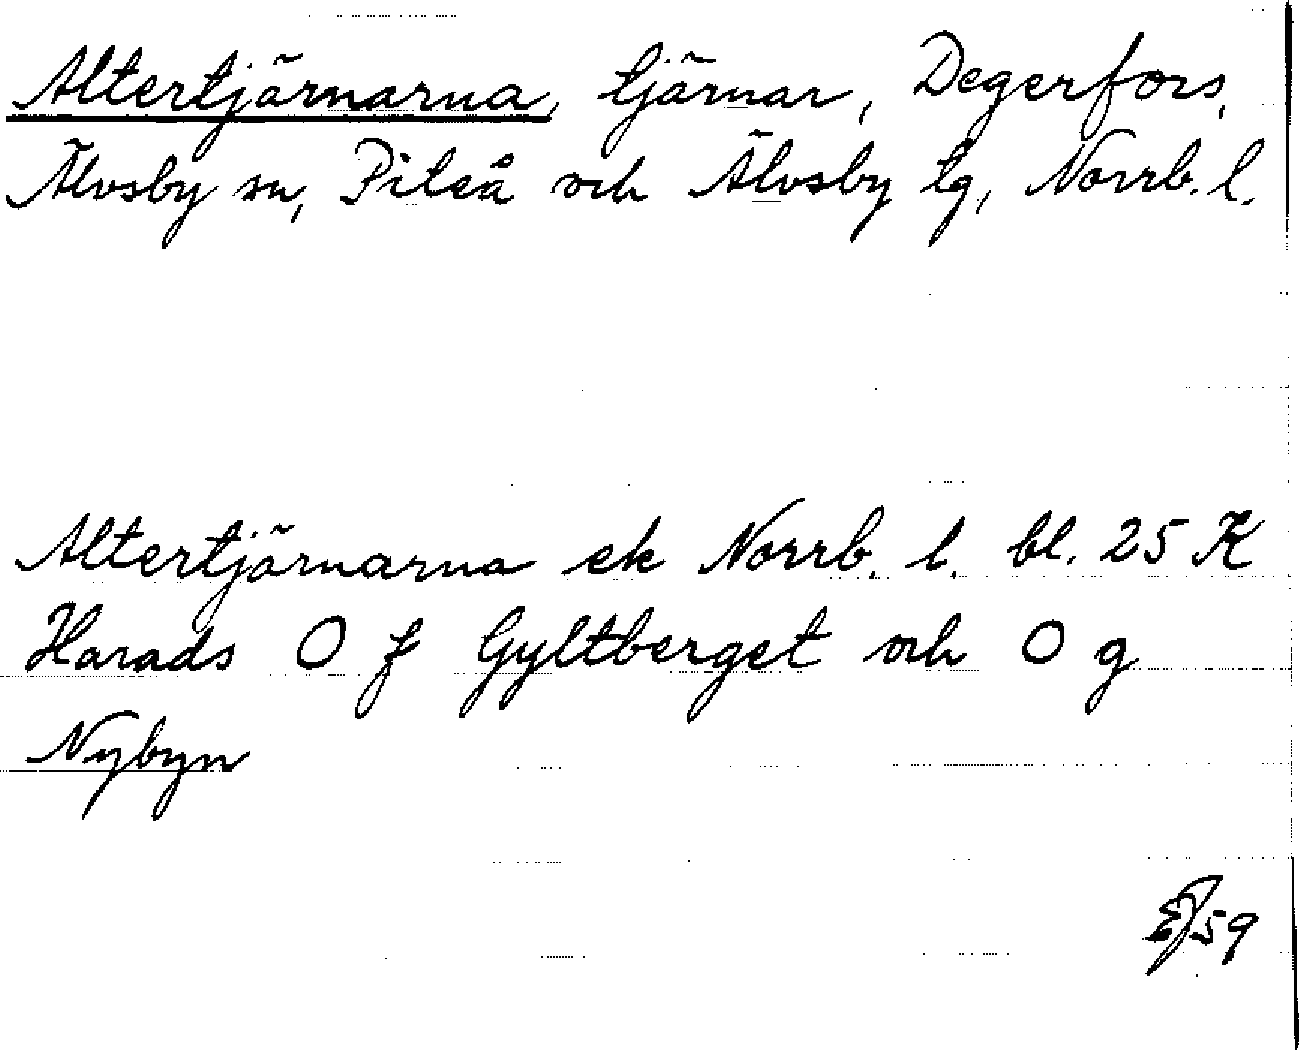 Altertjärnarna, tjärnar, Degerfors,
Älvsby sn, Piteå och Älvsby tg, Norrb. l.
Altertjärnarna ek Norrb. l. bl. 25 K
Harads O f Gyltberget och O g
Nybyn
59